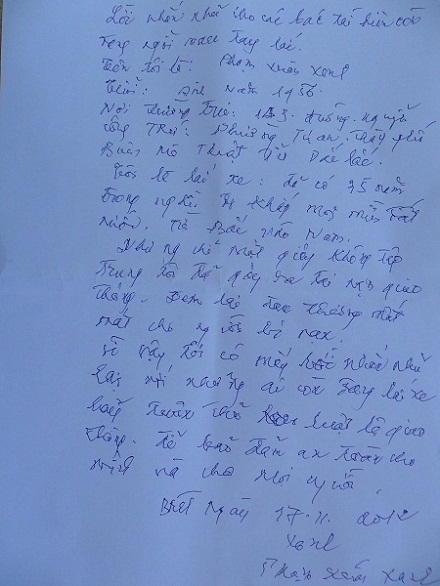 Lời nhắn nhủ cho các bác tài hiện còn
đang ngồi sau tay lái.
Tên tôi là: Phạm Xuân Xanh
Tuổi: Sinh năm 1956.
Nơi thường trú: 123. đường. Nguyễn
Công Trứ: Phường Tự an. Thành phố
Buôn Mô Thuột. Tỉnh Đắc lắc.
Tôi là lái xe: đã có 35 năm
trong nghề. Đi khắp mọi miền đất
nước. Từ Bắc vào Nam.
Nhưng chỉ một giây không tập
trung tôi đã gây ra tai nạn giao
thông. Đem lại đau thương mất
mát cho người bị nạn.
Vì vậy tôi có mấy nhắc nhủ
lại với những ai còn đang lái xe
hãy tuân thủ luật lệ giao
thông. Để bảo đảm an toàn cho
mình và cho mọi người.
BMT Ngày 17.11.2012
Xanh
Phạm Xuân Xanh